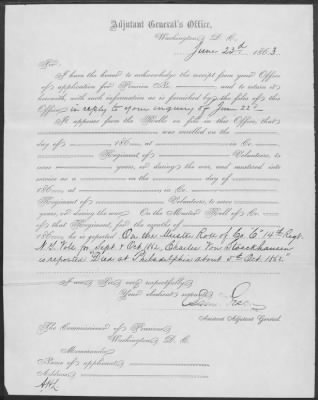 Adjutant General's Office,
Washington, D. C.
June 23rd 1863.
Sir:
I have the honor to acknowledge the receipt from your Office
of application for Pension No. and to return it
herewith, with such information as is furnished by the files of this
Office in reply to your inquiry of June 22d
It appears from the Rolls on file in this Office, that
was enrolled on the
day of 186 at in Co.
Regiment of Volunteers, to
serve years, or during the war, and mustered into
service as a on the day of
186 at in Co.
Regiment of Volunteers, to serve
years, or during the war. On the Muster Roll of Co.
of that Regiment, for the months of
186 he is reported On the Muster Roll of Co. "C" 14th Regt.
N.Y. Vols for Sept & Oct. 1862, Charles Von Stockhausen
is reported "Died at Philadelphia about 5th Oct. 1862."
I am, Sir, very respectfully,
Your obedient servant,
Assistant Adjutant General.
The Commissioner of Pensions,
Washington, D. C.
Memoranda:
Name of applicant
Address